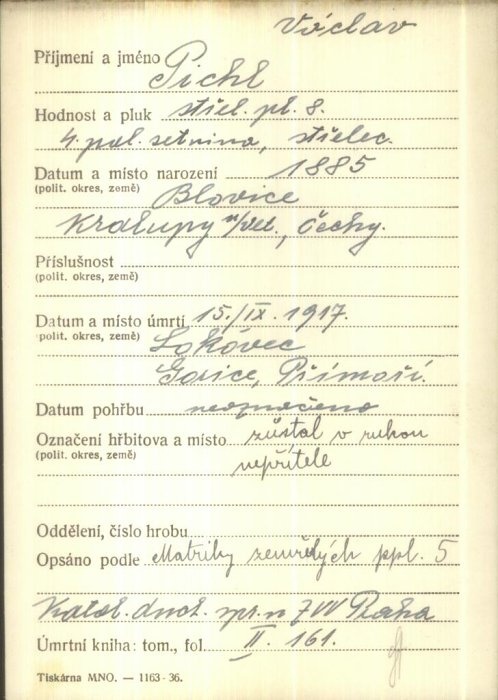 Václav
Příjmení a jméno Pichl
Hodnost a pluk střel. pl. 8.
4. pol. setnina, střelec.
Datum a místo narození 1885
(polit. okres, země) Blovice
Kralupy n/Vel., Čechy.
Příslušnost
(polit. okres, země)
Datum a místo úmrtí 15./IX. 1917.
(polit. okres, země) Lokovec
Gorice, Přímoří.
Datum pohřbu neoznačeno
Označení hřbitova a místo zůstal v rukou
(polit. okres, země) nepřítele
Oddělení, číslo hrobu
Opsáno podle Matriky zemřelých ppl. 5
Katol. duch. spr. n ZVV Praha
Úmrtní kniha: tom., fol. II. 161.
Tiskárna MNO. — 1163-36.